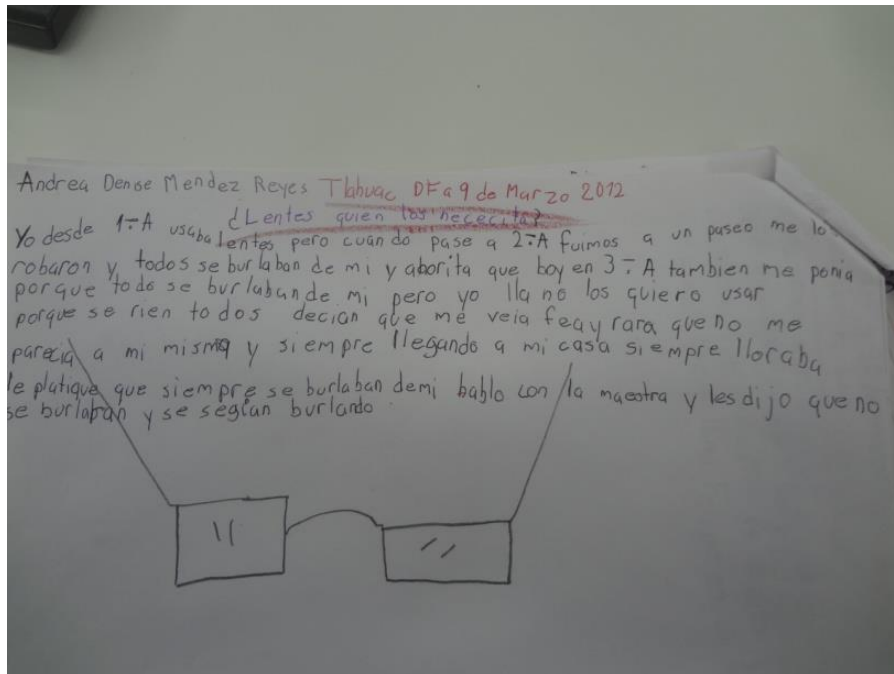 Andrea Denise Mendez Reyes Tlahuac DF a 9 de Marzo 2012
¿Lentes quien los nececita?
Yo desde 1-:A usaba lentes pero cuando pase a 2-:A fuimos a un paseo me los
robaron y todos se burlaban de mi y ahorita que boy en 3-:A tambien me ponia
porque todo se burlaban de mi pero yo lla no los quiero usar
porque se rien todos decian que me veia fea y rara que no me
parecia a mi misma y siempre llegando a mi casa siempre lloraba
le platique que siempre se burlaban de mi hablo con la maestra y les dijo que no
se burlaban y se segian burlando.